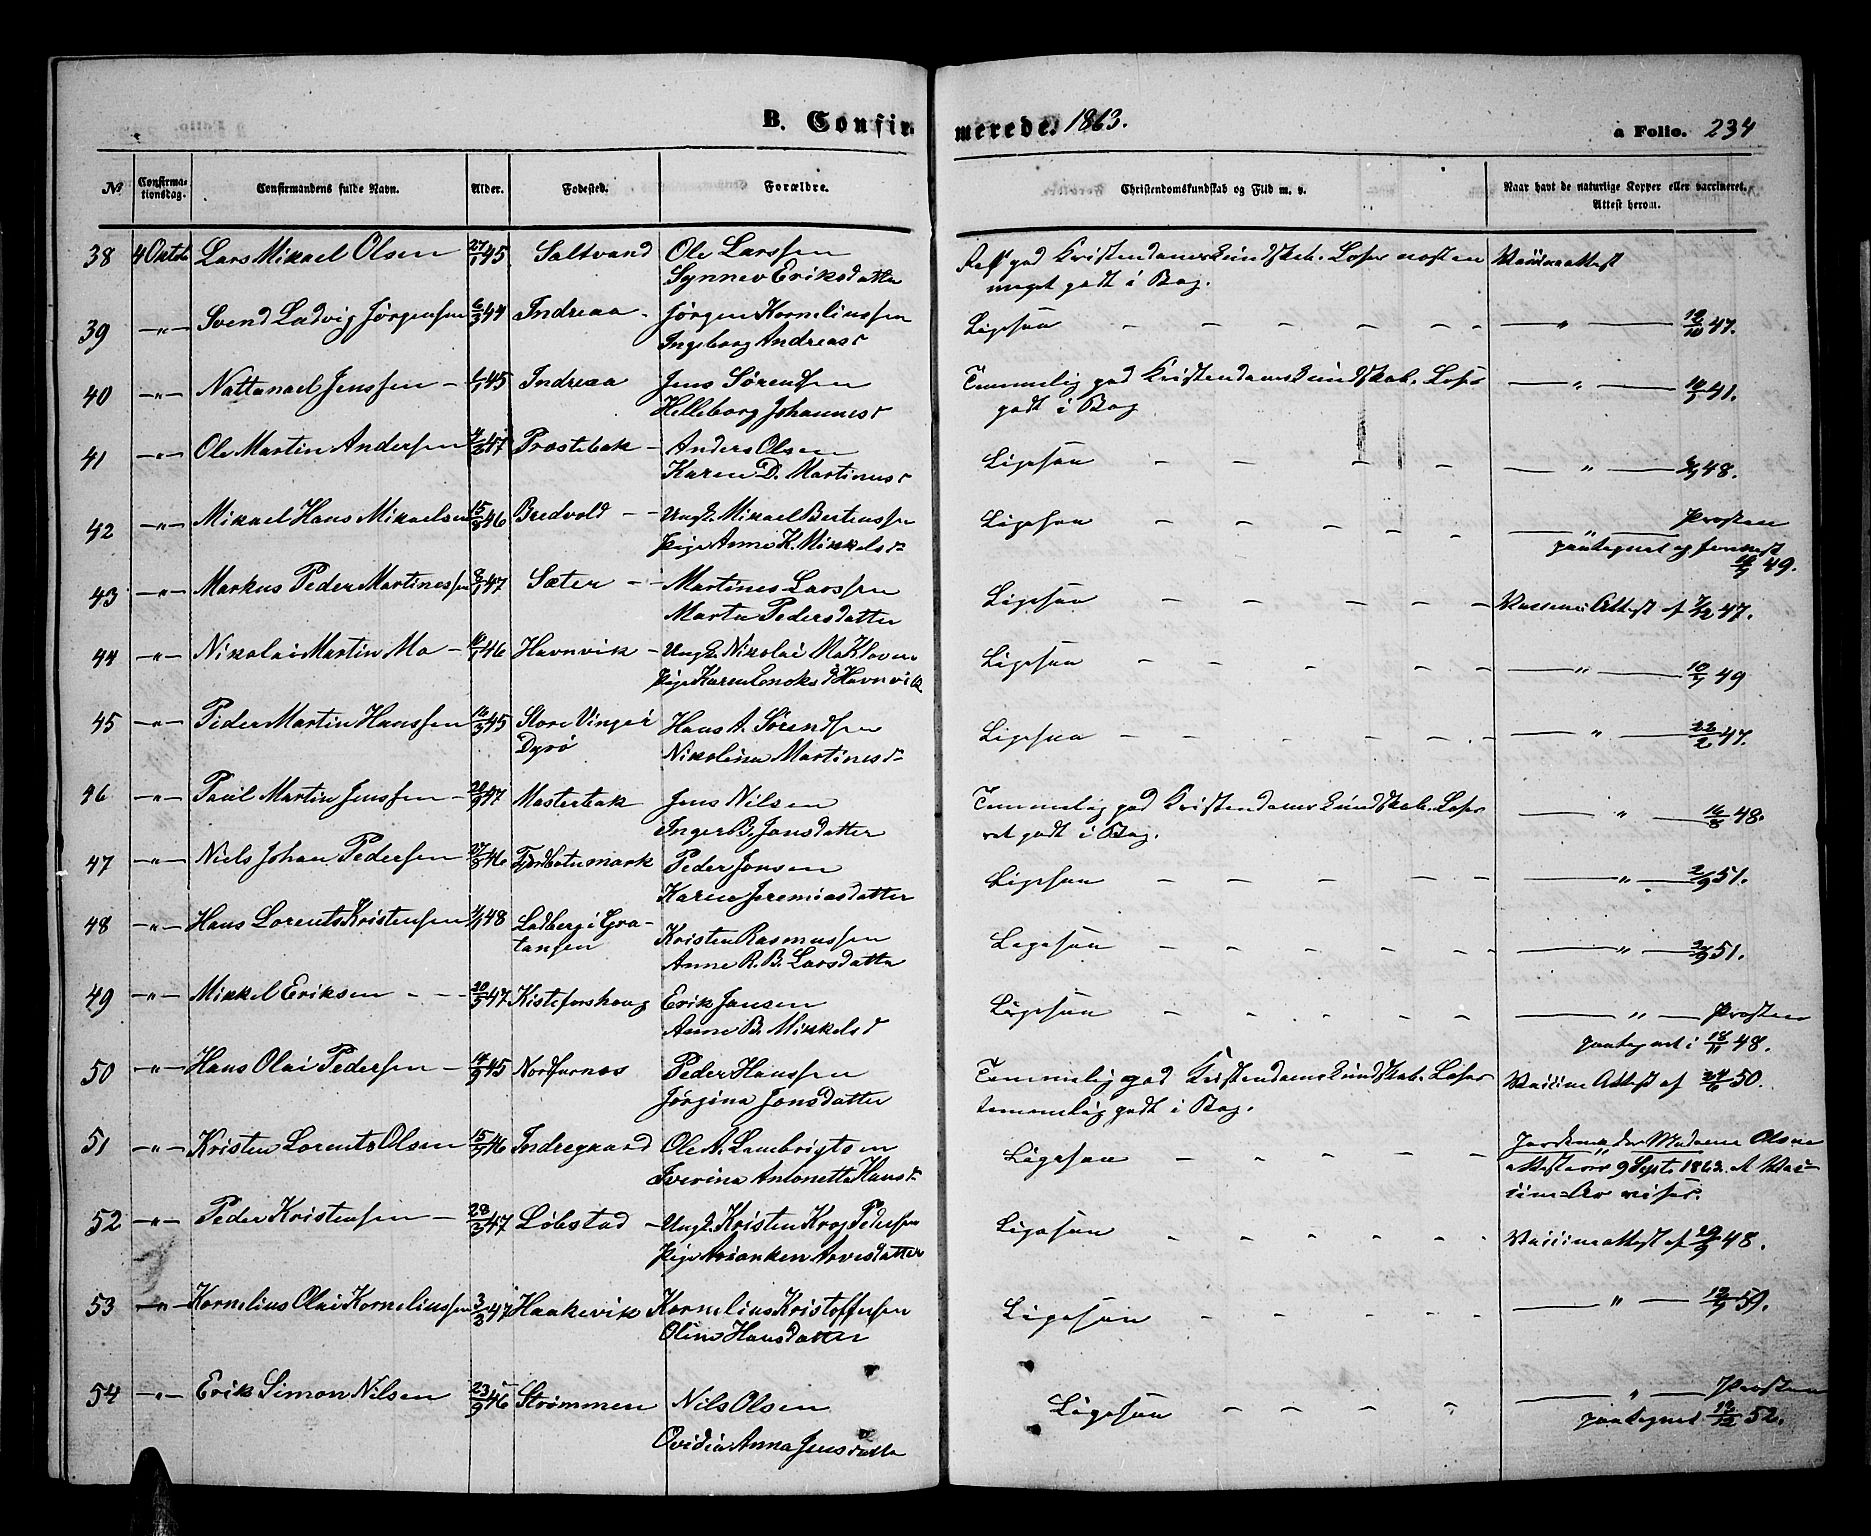 B. Confir
merede. 1863.
a Folio. 234
No
Confirma-
tionsdag.
Confirmandens fulde Navn.
Alder.
Fødested.
Forældre.
Christendomskundskab og Flid m. v.
Naar havt de naturlige Kopper eller vaccineret.
Attest herom.
38 4 Oktob Lars Mikael Olsen 27/1 45 Saltvand Ole Larssen
Synnev Eriksdatter
god Kristendomskundskab. Læser næsten
meget godt i Bog.
Vaccineattest
39 -"- Svend Ludvig Jørgensen 6/3 44 Indreaa Jørgen Korneliussen
Ingeborg Andreasd
Ligesaa - - - - -
— " — 12/10 47.
40 -"- Nattanael Jenssen 1/1 45 Indreaa Jens Sørensen
Helleborg Johannesd
Temmelig god Kristendomskundskab. Læser
godt i Bog
— " — 41.
41 -"- Ole Martin Andersen 47 Præstebak Anders Olsen
Karen D. Martinusd
Ligesaa - - - -
— " — 48.
42 -"- Mikael Hans Mikaelsen 15/8 46 Bredvold Ungk. Mikael Berteussen
Pige Anne K. Mikkelsd
Ligesaa - - - -
— " — Provsten
paategnet og 49.
43 -"- Markus Peder Martinessen 8/1 47 Sæter Martines Larssen
Marta Pedersdatter
Ligesaa - - - - -
Vaccine Attest af 7/2 47.
44 -"- Nikolai Martin Mo 46 Havnvik Ungk. Nikolai Mo Kløven
Pige Karen Enoksd Havnvik
Ligesaa - - - -
— " — 10/9 49
45 -"- Peder Martin Hanssen 16/3 45 Store Vinge i
Dyrø
Hans A. Sørendsen
Nikolina Martinesd
Ligesaa - - - - -
— " — 22/2 47.
46 -"- Paul Martin Jenssen 28/9 47 Mosterbak Jens Nilsen
Inger B. Jonsdatter
Temmelig god Kristendomskundskab. Læser
ret godt i Bog.
— " — 16/8 48.
47 -"- Niels Johan Pedersen 27/3 46 Fjordbotnmark Peder Jonsen
Karen Jeremiasdatter
Ligesaa - - - - -
— " — 2/9 51.
48 -"- Hans Lorents Kristensen 48 Ladberg i Gra-
tangen
Kristen Rasmussen
Anne R. B. Larsdatter
Ligesaa - - - - -
— " — 2/9 51.
49 -"- Mikkel Eriksen 30/5 47 Kisteforshaug Erik Jansen
Anne B. Mikkelsd
Ligesaa - - - - -
— " — Provsten
paategnet i 18/11 48.
50 -"- Hans Olai Pedersen 14/9 45 Norfurnes Peder Hanssen
Jørgina Jonsdatter
Temmelig god Kristendomskundskab. Læser
temmelig godt i Bog.
Vaccine Attest af 24/6 50.
51 -"- Kristen Lorents Olsen 15/5 46 Indregaard Ole A. Lambrigtsen
Iverina Antonetta Hansd
Ligesaa - - - - -
Jordemoder Madame Olsens
Attest 9 Septb. 1863. at Vac-
cine-Ar vises.
52 -"- Peder Kristensen 28/3 47 Løbstad Ungk. Kristen Krog Pedersen
Pige Arianken Arvesdatter
Ligesaa - - - - -
Vaccineattest af 48.
53 -"- Kornelius Olai Korneliussen 3/3 47 Haakevik Kornelius Kristoffersen
Oline Hansdatter
Ligesaa - - - - -
— " — 12/9 59.
54 -"- Erik Simon Nilsen 23/9 46 Strømmen Nils Olsen
Ovidia Anna Jensdatte
Ligesaa - - - -
— " — Provsten
paategnet 19/12 52.